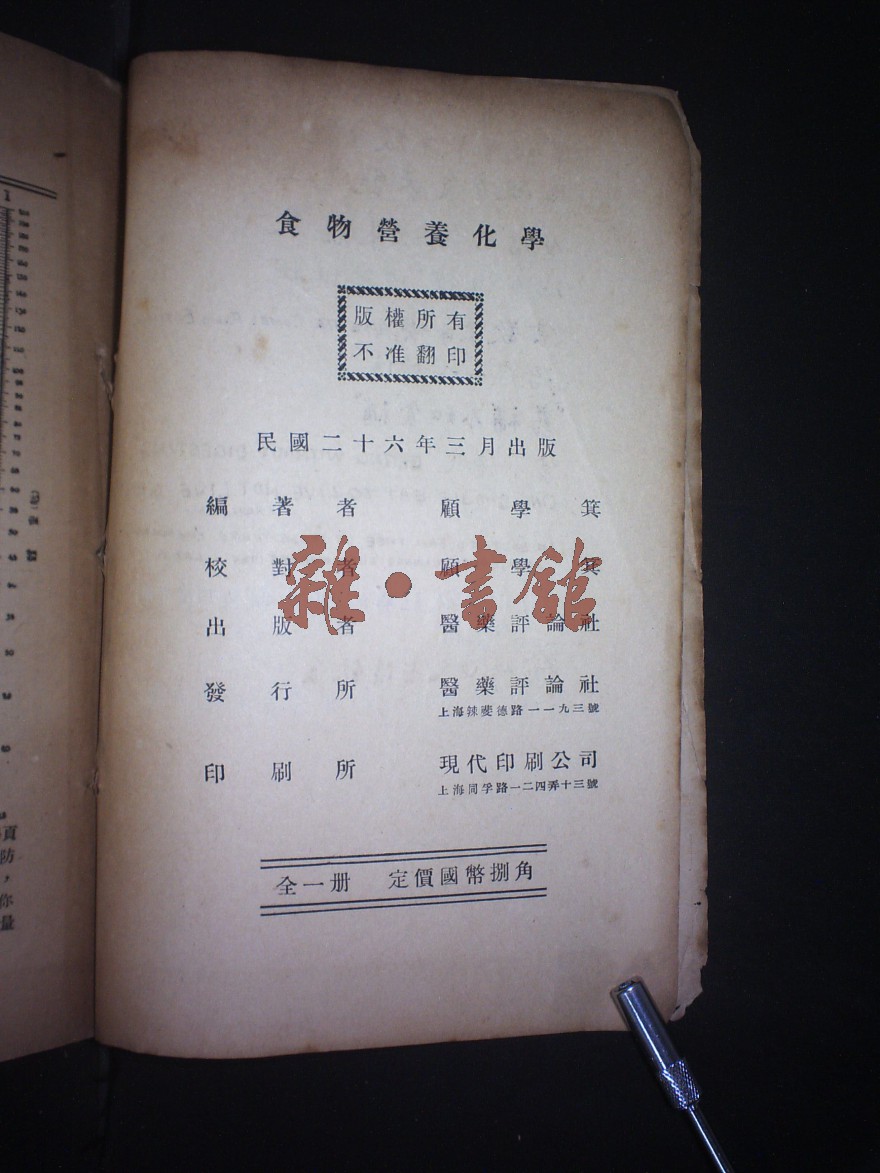 食物營養化學
版權所有
不准翻印
民國二十六年三月出版
編著者 顧學箕
校對者 顧學箕
出版者 醫藥評論社
發行所 醫藥評論社
上海辣斐德路一一九三號
印刷所 現代印刷公司
上海同孚路一二四弄十三號
全一册 定價國幣捌角
雜·書館
頁
防
，
你
量